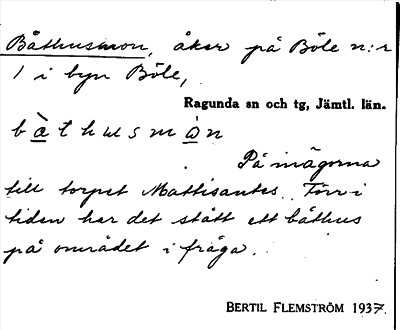 Båthusmon, åker på Böle n:r
1 i byn Böle,
Ragunda sn och tg, Jämtl. län.
b à t h u s m ò n
På inägorna
till torpet Mattisantes. Förr i
tiden har det stått ett båthus
på området i fråga.
BERTIL FLEMSTRÖM 1937.